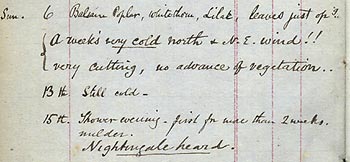 Sun. 6 Balsam Poplar, Whitethorn, Lilac, leaves just opd.
A week's very cold north & N.E. wind!!
very cutting, no advance of vegetation..
13th Still cold –
15th. Shower evening – first for more than 2 weeks.
milder.
Nightingale heard.